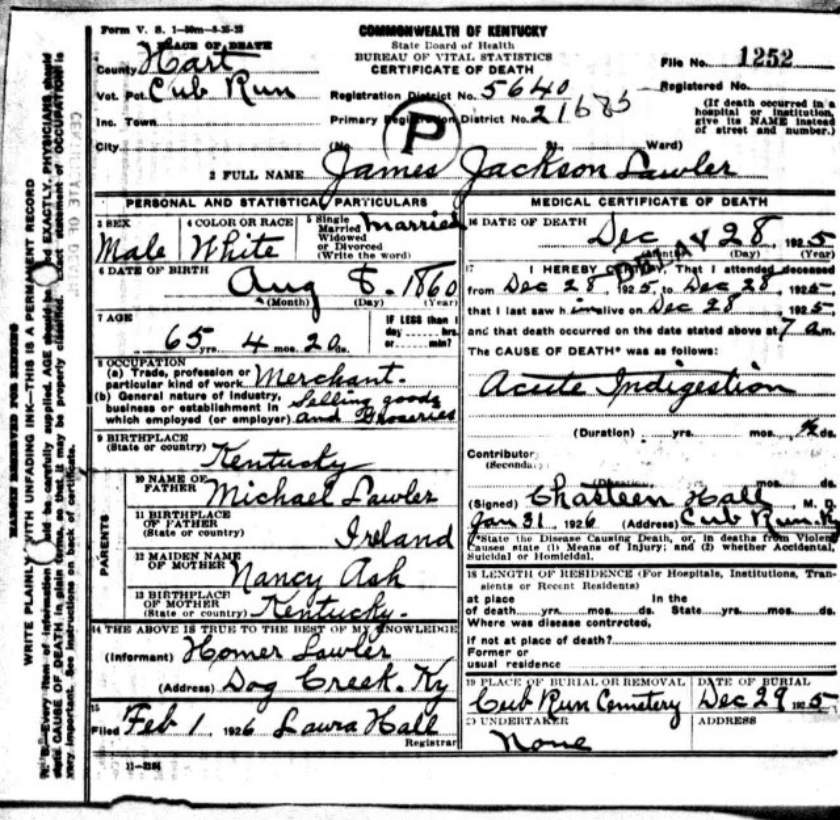 Form V. S. 1
COMMONWEALTH OF KENTUCKY
State Board of Health
BUREAU OF VITAL STATISTICS
CERTIFICATE OF DEATH
File No. 1252
Registered No.
(If death occurred in a hospital or institution, give its NAME instead of street and number.)
PLACE OF DEATH
County Hart
Vot. Pct. Cub Run
Registration District No. 5640
Inc. Town
Primary Registration District No. 21685
P
City (No. St. Ward)
2 FULL NAME James Jackson Lawler
PERSONAL AND STATISTICAL PARTICULARS
3 SEX Male
4 COLOR OR RACE White
5 Single Married Widowed or Divorced (Write the word) married
6 DATE OF BIRTH Aug 8. 1860
(Month) (Day) (Year)
7 AGE 65 yrs. 4 mos. 20 ds.
IF LESS than 1 day hrs. or min?
8 OCCUPATION
(a) Trade, profession or particular kind of work Merchant.
(b) General nature of industry, business or establishment in which employed (or employer) Selling goods and Groceries
9 BIRTHPLACE (State or country) Kentucky
PARENTS
10 NAME OF FATHER Michael Lawler
11 BIRTHPLACE OF FATHER (State or country) Ireland
12 MAIDEN NAME OF MOTHER Nancy Ash
13 BIRTHPLACE OF MOTHER (State or country) Kentucky.
14 THE ABOVE IS TRUE TO THE BEST OF MY KNOWLEDGE
(Informant) Homer Lawler
(Address) Dog Creek. Ky
15 Filed Feb 1, 1926 Laura Hall
Registrar
11-2184
MEDICAL CERTIFICATE OF DEATH
16 DATE OF DEATH Dec 28, 1925
(Month) (Day) (Year)
DELAY
17 I HEREBY CERTIFY, That I attended deceased
from Dec 28 1925, to Dec 28, 1925
that I last saw him alive on Dec 28 1925
and that death occurred on the date stated above at 7 am.
The CAUSE OF DEATH* was as follows:
Acute Indigestion
(Duration) yrs. mos. ½ ds.
Contributory
(Secondary)
(Duration) mos. ds.
(Signed) Chasteen Hall, M. D.
Jan 31, 1926 (Address) Cub Run. Ky
*State the Disease Causing Death, or, in deaths from Violent Causes state (1) Means of Injury; and (2) whether Accidental, Suicidal or Homicidal.
18 LENGTH OF RESIDENCE (For Hospitals, Institutions, Transients or Recent Residents)
at place of death yrs. mos. ds. In the State yrs. mos. ds.
Where was disease contrcted,
if not at place of death?
Former or usual residence
19 PLACE OF BURIAL OR REMOVAL Cub Run Cemetery
DATE OF BURIAL Dec 29 1925
20 UNDERTAKER None
ADDRESS
MARGIN RESERVED FOR BINDING
WRITE PLAINLY WITH UNFADING INK—THIS IS A PERMANENT RECORD
N. B.—Every item of information should be carefully supplied. AGE should be stated EXACTLY. PHYSICIANS should state CAUSE OF DEATH in plain terms, so that it may be properly classified. Exact statement of OCCUPATION is very important. See instructions on back of certificate.
CERTIFICATE OF DEATH